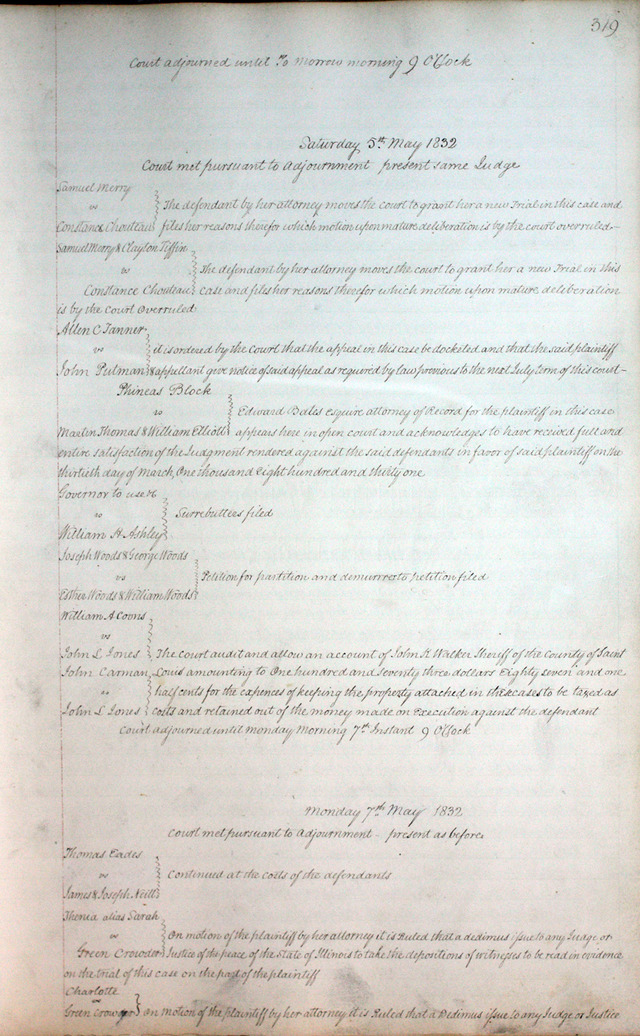 319
Court adjourned until To Morrow morning 9 O'Clock
Saturday 5th May 1832
Court met pursuant to Adjournment present same Judge
Samuel Merry
vs
The defendant by her attorney moves the court to grant her a new Trial in this case and
Constance Chouteau files her reasons therefor which motion upon mature deliberation is by the court overruled
Samuel Merry & Clayton Tiffin
vs
The defendant by her attorney moves the court to grant her a new Trial in this
Constance Chouteau case and files her reasons therefor which motion upon mature deliberation
is by the Court Overruled
Allen C Tanner
vs
it is ordered by the Court that the appeal in this case be docketed and that the said plaintiff
John Pulman & appellant give notice of said appeal as required by law previous to the next July term of this court
Phineas Block
vs
Edward Bates esquire attorney of Record for the plaintiff in this case
Martin Thomas & William Elliott appears here in open court and acknowledges to have received full and
entire satisfaction of the Judgment rendered against the said defendants in favor of said plaintiff on the
thirtieth day of March, One thousand Eight hundred and thirty one
Governor to use &c
vs
Surrebutters filed
William H Ashley
Joseph Woods & George Woods
vs
Petition for partition and demurrer to petition filed
Esther Woods & William Woods
William A Coons
vs
John L Jones The court audit and allow an account of John K Walker Sheriff of the County of Saint
John Carman Louis amounting to One hundred and Seventy three dollars Eighty seven and one
vs
half cents for the expences of keeping the property attached in these cases to be taxed as
John L Jones costs and retained out of the money made on Execution against the defendant
Court adjourned until Monday Morning 7th Instant 9 O'Clock
Monday 7th May 1832
Court met pursuant to Adjournment - present as before
Thomas Eades
vs
Continued at the costs of the defendants
James & Joseph Neill
Thenia alias Sarah
vs
On motion of the plaintiff by her attorney it is Ruled that a dedimus issue to any Judge or
Green Crowder Justice of the peace, of the State of Illinois to take the depositions of witnesses to be read in evidence
on the trial of this case on the part of the plaintiff
Charlotte
vs
Green Crowder on motion of the plaintiff by her attorney it is Ruled that a Dedimus issue to any Judge or Justice